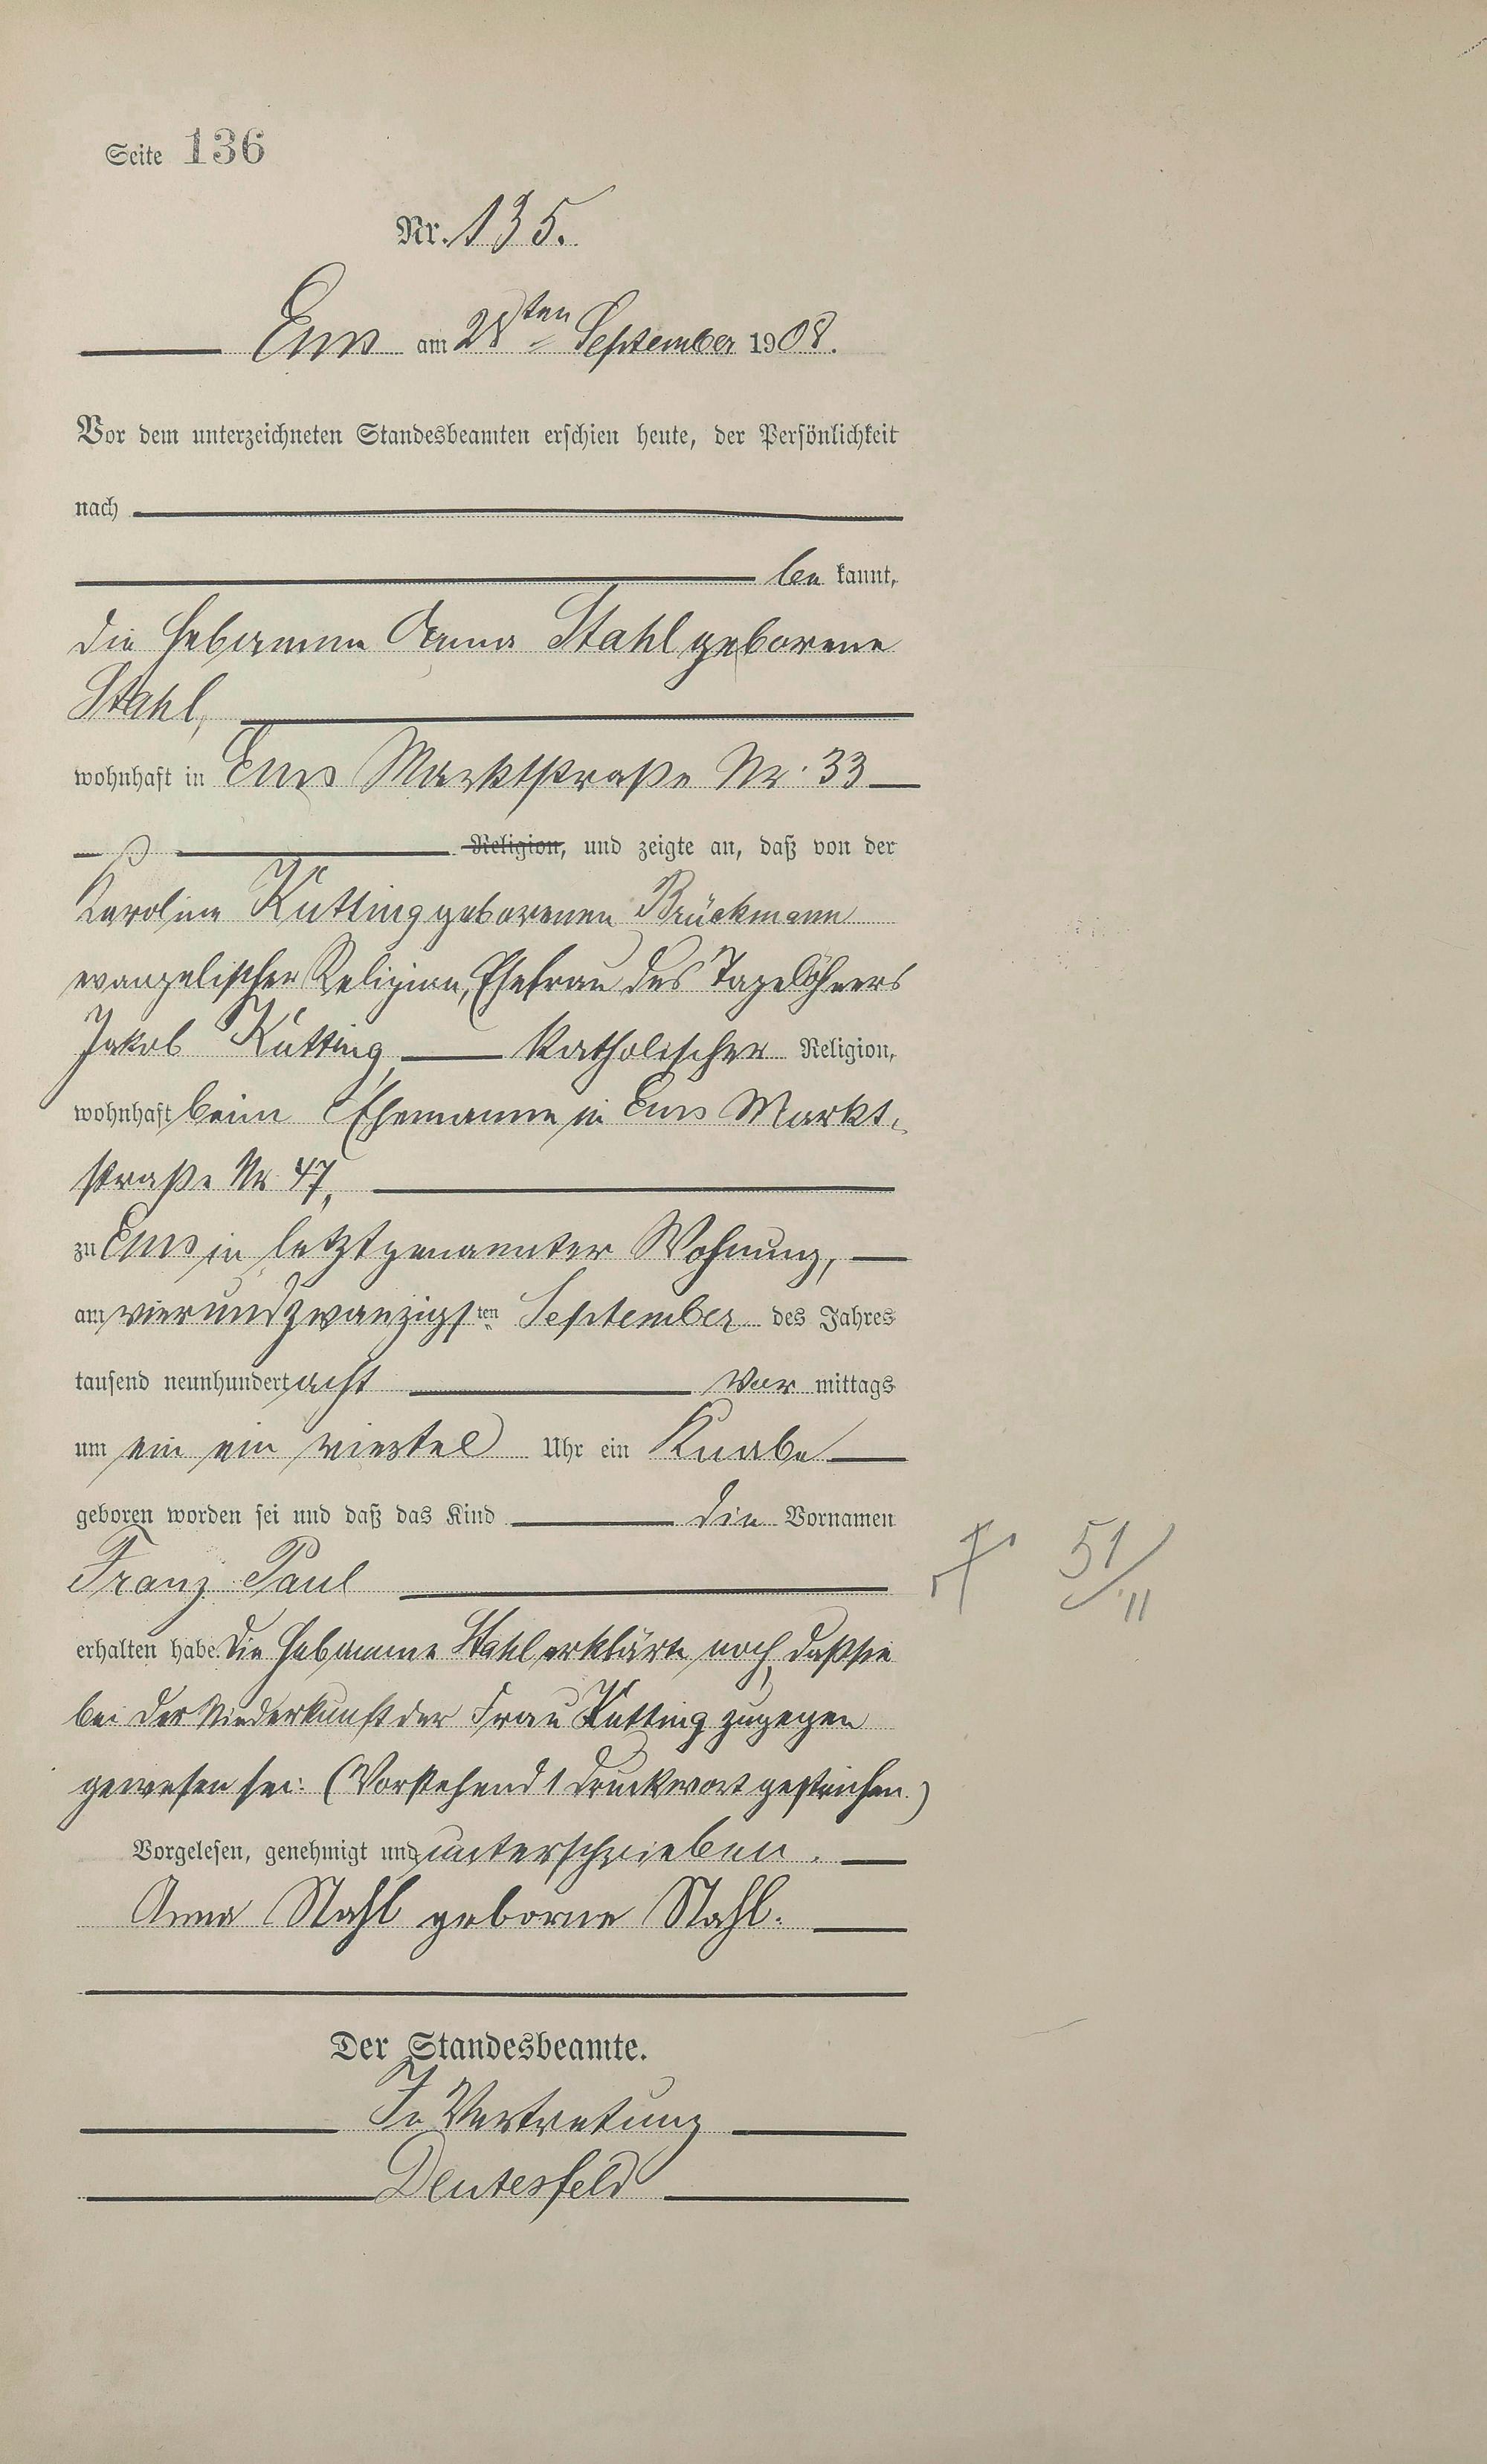 Seite 136
Nr. 135.
Ems am 28ten September 1908.
Vor dem unterzeichneten Standesbeamten erschien heute, der Persönlichkeit
nach
be kannt,
die Hebamme Anna Stahl geborene
Stahl,
wohnhaft in Ems Marktstraße Nr. 33
Religion, und zeigte an, daß von der
Karoline Kutting geborenen Brückmann
evangelischer Religion, Ehefrau des Tagelöhners
Jakob Kutting, katholischer Religion,
wohnhaft beim Ehemanne in Ems Markt-
straße Nr. 47,
zu Ems in letztgenannter Wohnung,
am vierundzwanzigsten September des Jahres
tausend neunhundert acht Vor mittags
um ein ein viertel Uhr ein Knabe
geboren worden sei und daß das Kind die Vornamen
Franz Paul
erhalten habe. Die Hebamme Stahl erklärte noch, daß sie
bei der Niederkunft der Frau Kutting zugegen
gewesen sei. (Vorstehend 1 Druckwort gestrichen.)
Vorgelesen, genehmigt und unterschrieben.
Anna Stahl geborne Stahl.
Der Standesbeamte.
In Vertretung
Deutesfeld
51/11